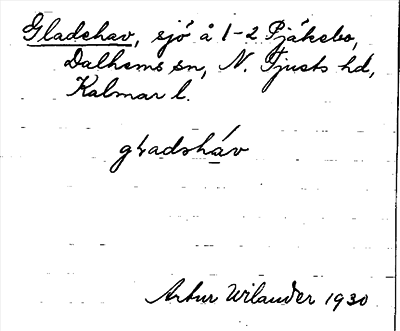 Gladehav, sjö å 1-2 Pjäkebo,
Dalhems sn, N. Tjusts hd,
Kalmar l.
gładsháv
Artur Wilander 1930